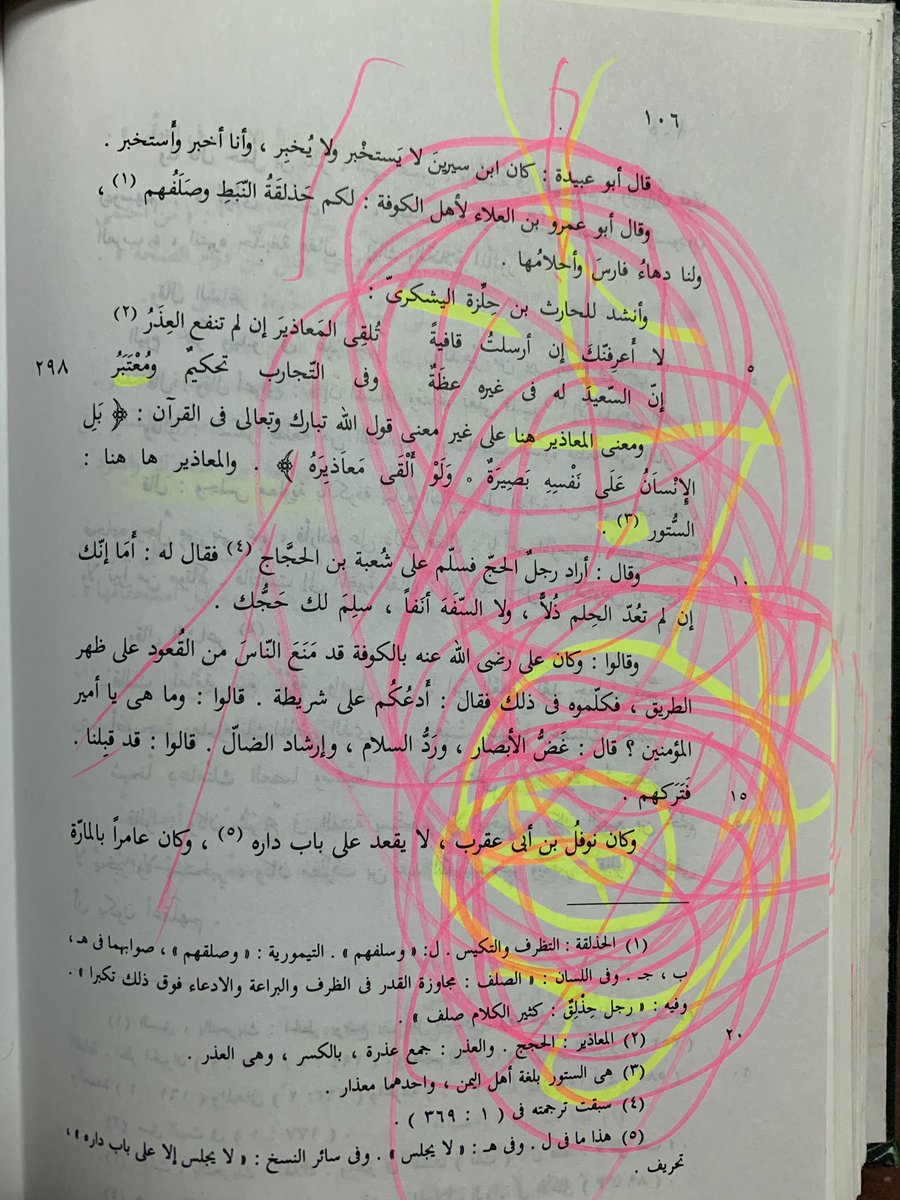 ١٠٦
قال أبو عبيدة : كان ابن سيرينَ لا يَستخْبر ولا يُخبِر ، وأنا أخبر وأَستخبر .
وقال أبو عمرو بن العلاء لأهل الكوفة : لكم حَذلقَةُ النّبَطِ وصَلَفُهم (١) ،
ولنا دهاءُ فارسَ وأحلامُها .
وأنشد للحارث بن حِلِّزة اليشكرىّ :
لا أَعرِفنّكَ إن أرسلتُ قافيةً تُلقِى المَعاذيرَ إن لم تنفع العِذَرُ (٢) ٥
إنّ السّعيدَ له فى غيره عظَةٌ وفى التّجارب تحكيمٌ ومُعْتَبَرُ ٢٩٨
ومعنى المعاذير هنا على غير معنى قول الله تبارك وتعالى فى القرآن : ﴿ بَلِ
الإِنْسَانُ عَلَى نَفْسِهِ بَصِيرَةٌ . وَلَوْ أَلْقَى مَعاَذِيرَهُ ﴾ . والمعاذير ها هنا :
السُّتور (٣) .
وقال : أراد رجلٌ الحجّ فسلّم على شُعبة بن الحجَّاج (٤) فقال له : أَمَا إنّك ١٠
إن لم تعُدّ الحِلم ذُلاًّ ، ولا السّفَهَ أنَفاً ، سلِمَ لك حَجُّك .
وقالوا : وكان على رضى الله عنه بالكوفة قد مَنَعَ النّاسَ من القُعود على ظهر
الطريق ، فكلّموه فى ذلك فقال : أَدعُكُم على شريطة . قالوا : وما هى يا أمير
المؤمنين ؟ قال : غَضُّ الأبصار ، ورَدُّ السلام ، وإرشاد الضالّ . قالوا : قد قبِلنا .
فَتَرَكهم . ١٥
وكان نوفلُ بن أبى عقرب ، لا يقعد على باب داره (٥) ، وكان عامراً بالمارّة
(١) الحذلقة : التظرف والتكيس . ل: « وسلفهم » . التيمورية : « وصلقهم » ، صوابهما فى هـ ،
ب ، جـ . وفى اللسان : « الصلف : مجاوزة القدر فى الظرف والبراعة والادعاء فوق ذلك تكبرا » .
وفيه : « رجل حِذْلِقٌ : كثير الكلام صلف » .
(٢) المعاذير : الحجج . والعذر : جمع عذرة ، بالكسر ، وهى العذر . ٢٠
(٣) هى الستور بلغة أهل اليمن ، واحدهما معذار .
(٤) سبقت ترجمته فى ( ١ : ٣٦٩ ) .
(٥) هذا ما فى ل . وفى هـ : « لا يجلس » . وفى سائر النسخ : « لا يجلس إلا على باب داره » ،
تحريف .